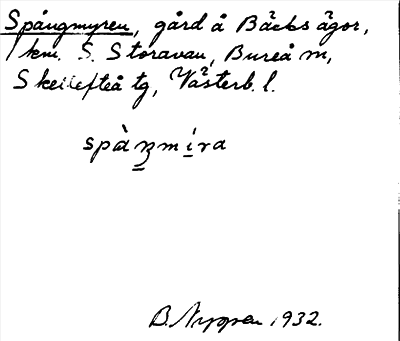 Spångmyren, gård å Bäcks ägor,
1 km. S. Storavan, Bureå sn,
Skellefteå tg, Västerb. l.
spàŋmíra
B. Nygren 1932.